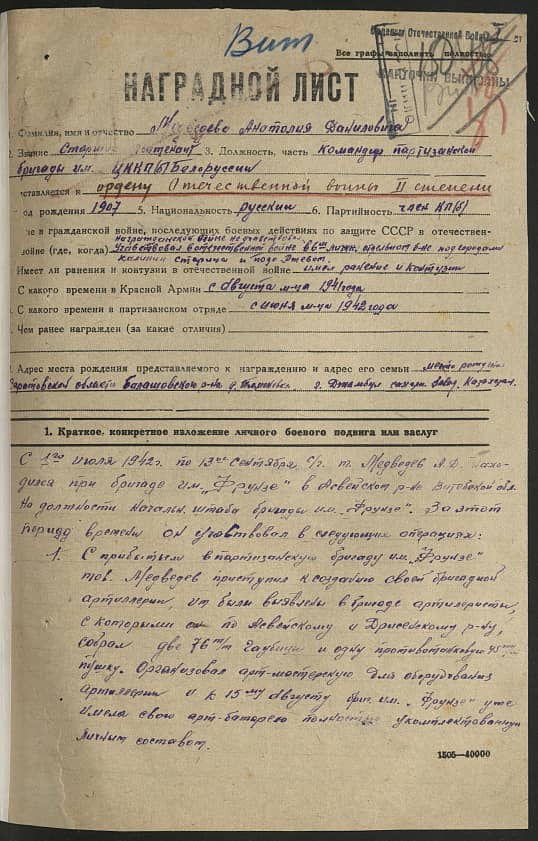 Вит
Орденом Отечественной Войны
Все графы заполнить полностью
НАГРАДНОЙ ЛИСТ
1. Фамилия, имя и отчество Медведева Анатолия Даниловича
2. Звание Старший лейтенант 3. Должность, часть Командир партизанской
бригады им. ЦККП(б) Белоруссии
ставляется к ордену Отечественной войны II степени
од рождения 1907 5. Национальность русский 6. Партийность член КП(б)
ие в гражданской войне, последующих боевых действиях по защите СССР в отечествен-
в гражданской войне не участвовал
войне (где, когда) Участвовал в отечественной войне в
Калинин Старица и подо Ржевом.
Имеет ли ранения и контузии в отечественной войне имел ранение и контузии
С какого времени в Красной Армии с августа м-ца 1941 года
С какого времени в партизанском отряде с июня м-ца 1942 года
Чем ранее награжден (за какие отличия)
Адрес места рождения представляемого к награждению и адрес его семьи место рожден.
Саратовской области Балашовского р-на г. Джамбул сахарн. завод. Казахстан.
1. Краткое, конкретное изложение личного боевого подвига или заслуг
С 1го июля 1942г. по 13ое сентября с/г. т. Медведев А.Д. нахо-
дился при бригаде им. „Фрунзе" в Освейском р-не Витебской обл.
На должности начальн. штаба бригады им. „Фрунзе". За этот
период времени он участвовал в следующих операциях:
1. С прибытьем в партизанскую бригаду им. „Фрунзе"
тов. Медведев приступил к созданию своей бригадной
артиллерии, были выявлены в бригаде артилеристы,
с которыми он по Освейскому и Дриссенскому р-ну,
собрал две 76 м/м гаубицы и одну противотанковую 45
пушку. Организовал арт-мастерскую для оборудования
артиллерии и к 15му августу бриг. им. „Фрунзе" уже
имела свою арт-батарею полностью укомплектованную
личным составом.
1505—40000